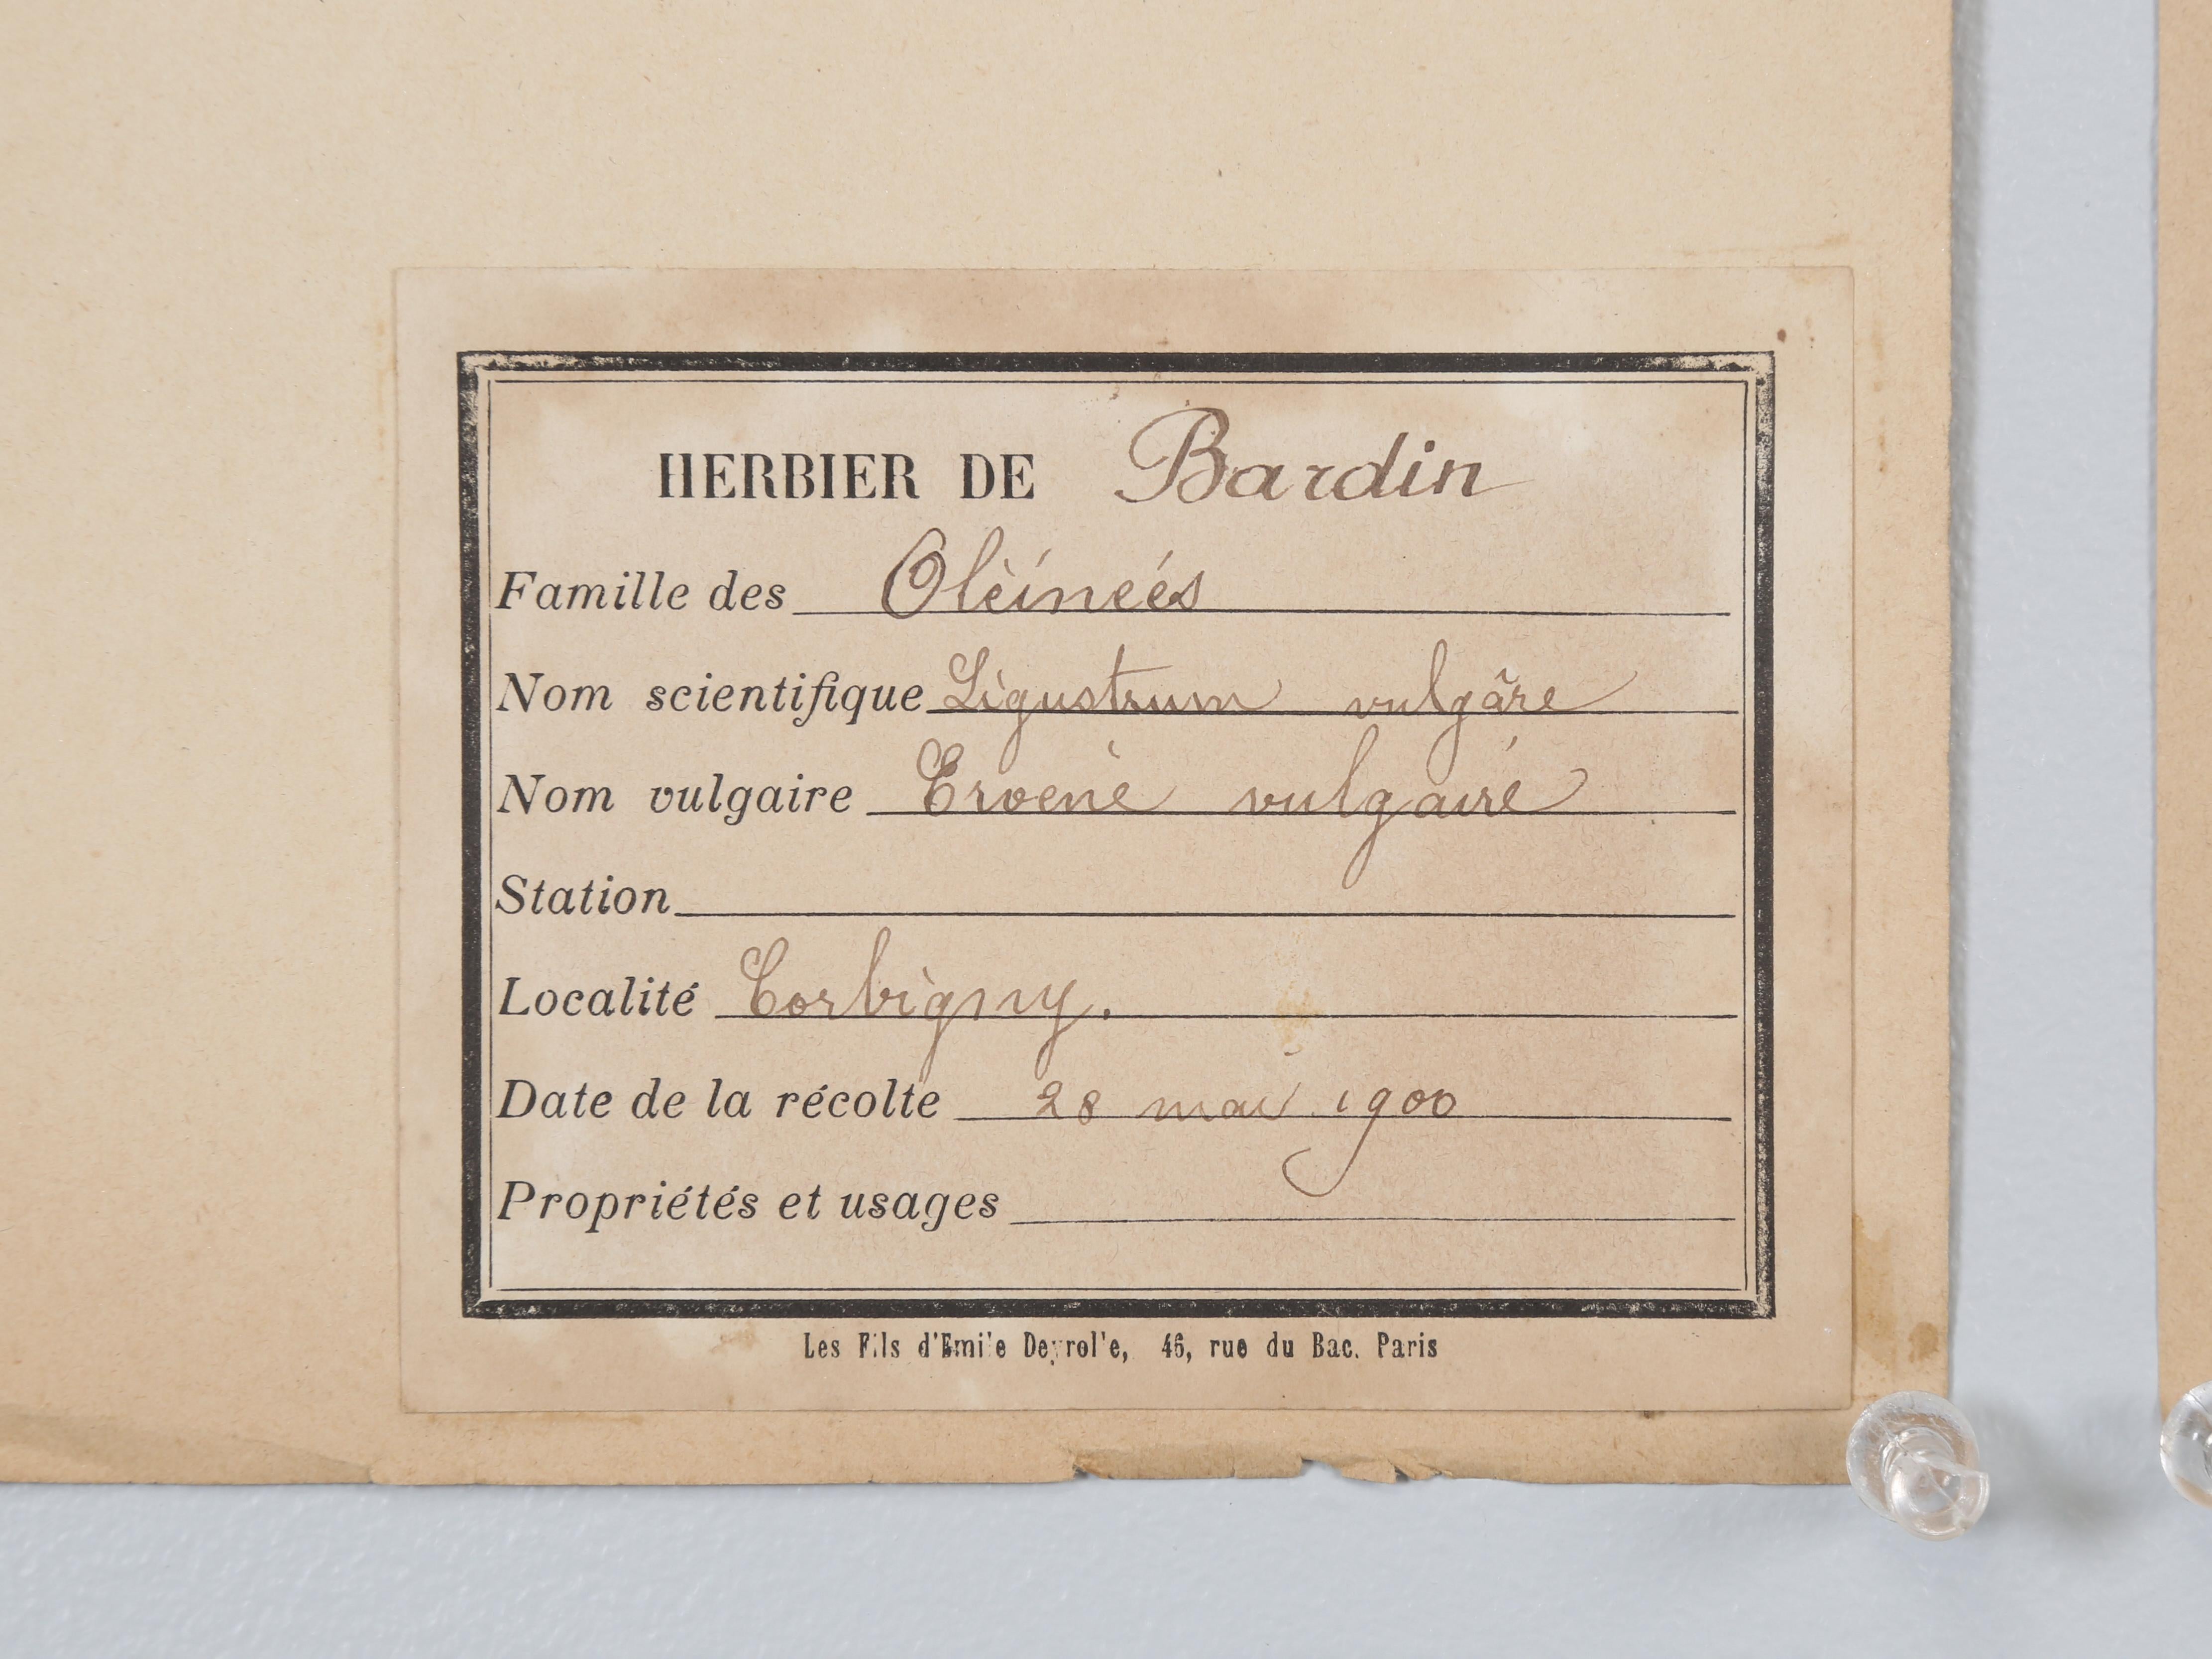 HERBIER DE Bardin
Famille des Oléinéés
Nom scientifique Ligustrum vulgâre
Nom vulgaire Eroene vulgaire
Station
Localité Corbigny.
Date de la récolte 28 mai 1900
Propriétés et usages
Les Fils d'Emile Deyrolle, 46, rue du Bac. Paris